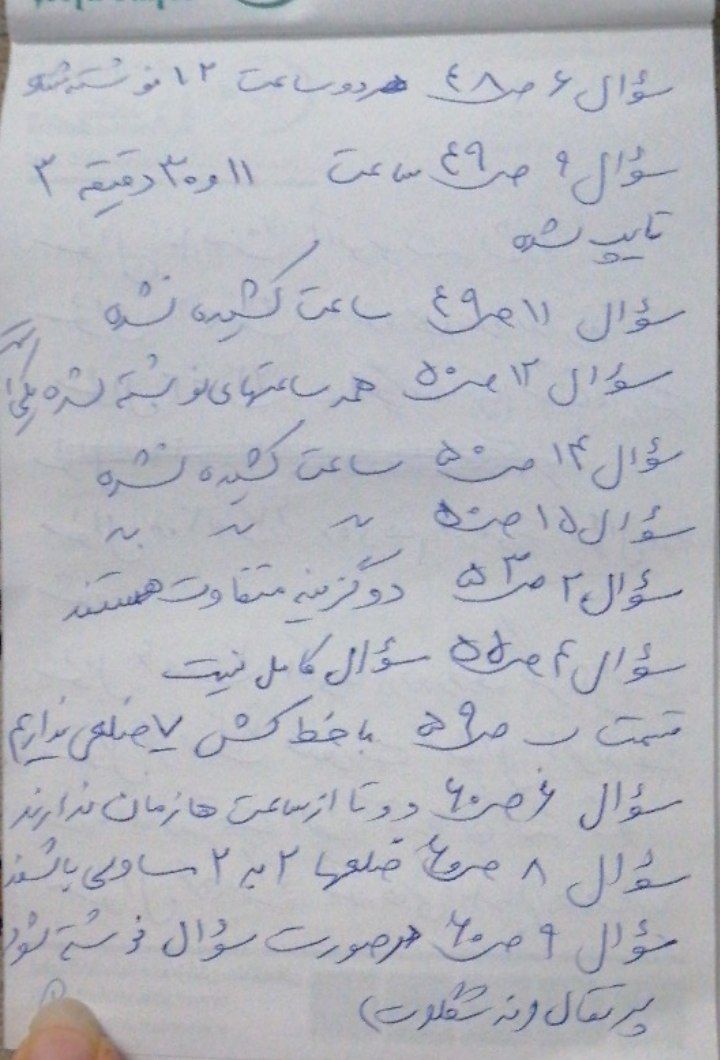 سؤال ۶ ص ۴۸ هر دو ساعت ۱۲ نوشته شده
سؤال ۹ ص ۴۹ ساعت ۱۱ و ۳۰ دقیقه ۳
تایپ شده
سؤال ۱۱ ص ۴۹ ساعت کشیده نشده
سؤال ۱۲ ص ۵۰ همه ساعتهای نوشته شده
سؤال ۱۴ ص ۵۰ ساعت کشیده نشده
سؤال ۱۵ ص ۵۰ 〃 〃 〃
سؤال ۲ ص ۵۳ دو گزینه متفاوت هستند
سؤال ۴ ص ۵۵ سؤال کامل نیست
قسمت ب ص ۵۹ با خط کش ۷ ضلعی نداریم
سؤال ۶ ص ۶۰ دو تا از ساعت ها زمان ندارند
سؤال ۸ ص ۶۰ ضلعها ۲ به ۲ مساوی باشند
سؤال ۹ ص ۶۰ در صورت سؤال نوشته شود
پرتقال (نه شکلات)